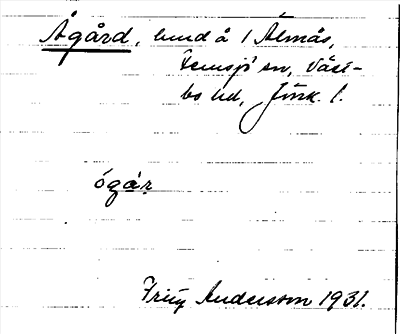 Ågård, lund å 1 Älmås,
Femsjö sn, Väst-
bo hd, Jönk. l.
ógár
Fritz Andersson 1931.